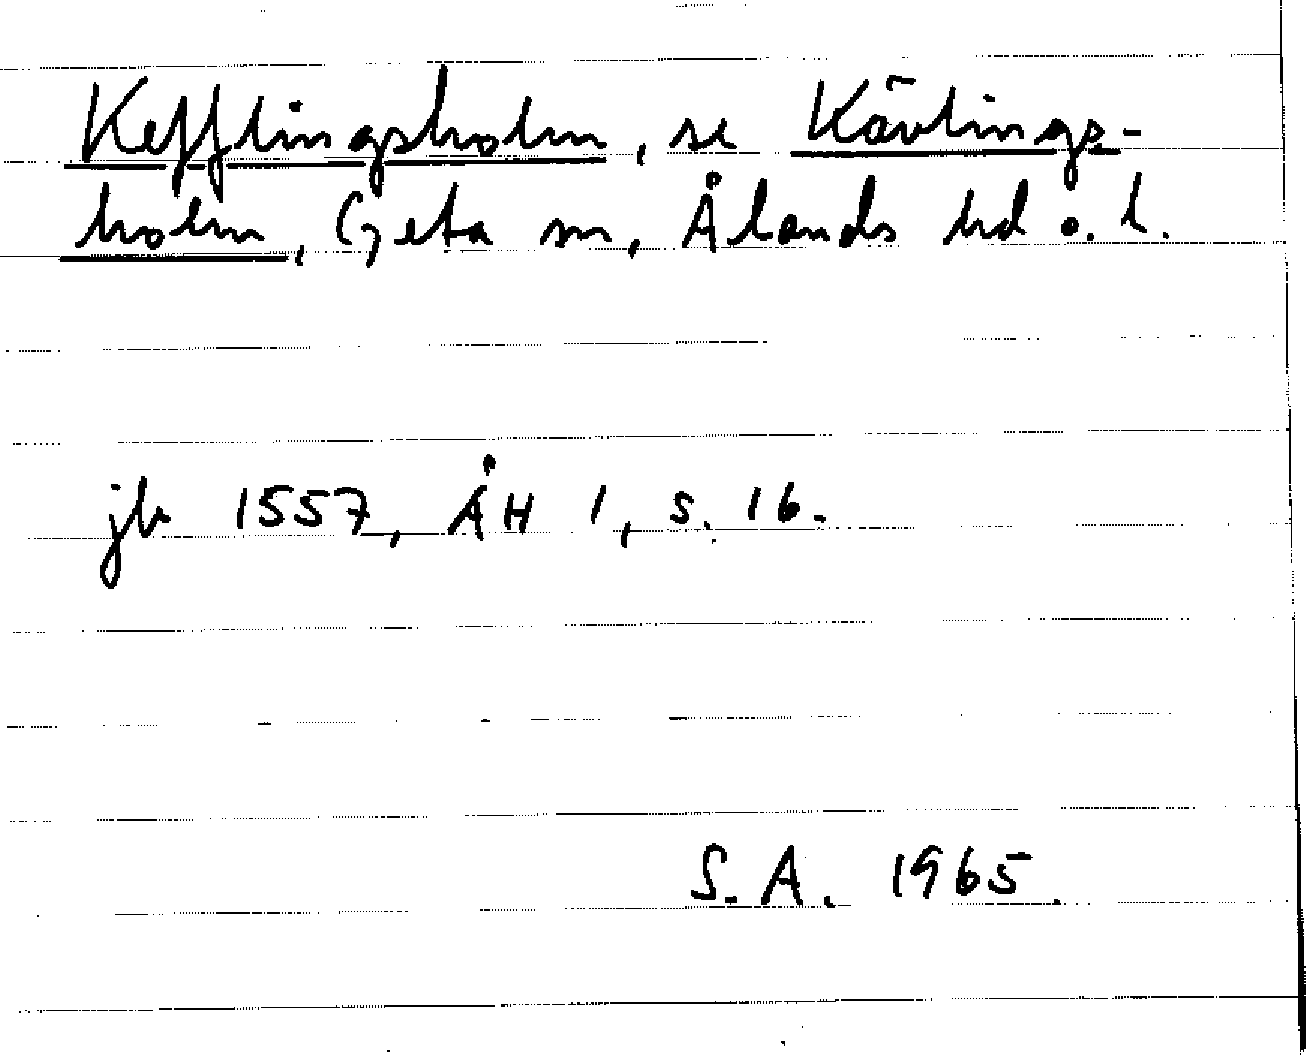 Kefflingsholm, se Kävlings-
holm, Geta sn, Ålands hd o. l.
jb 1557, ÅH 1, s. 16.
S. A. 1965.